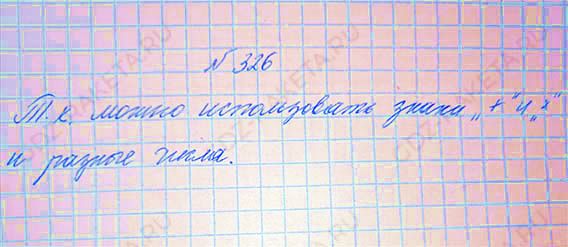 №326
Т.к. можно использовать знаки „+" и „×"
и разные числа.
GDZ-RAKETA.RU